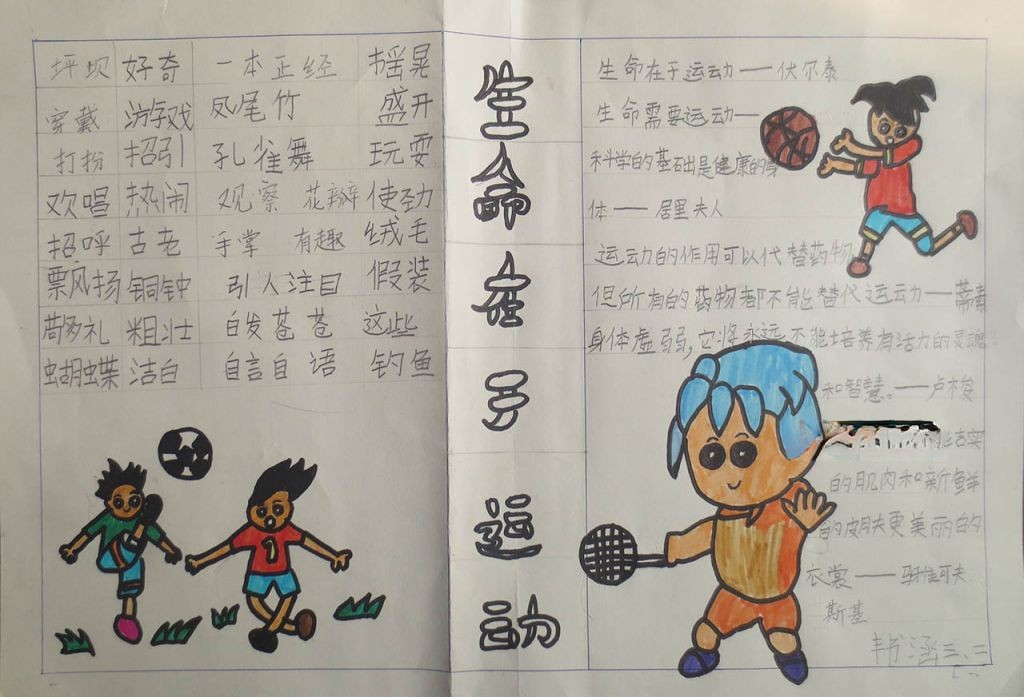 坪坝 好奇 一本正经 摇晃
穿戴 游字戏 凤尾竹 盛开
打扮 招引 孔雀舞 玩耍
欢唱 热闹 观察 花瓣 使劲
招呼 古老 手掌 有趣 绒毛
飘扬 铜钟 引人注目 假装
礼 粗壮 白发苍苍 这些
蝴蝶 洁白 自言自语 钓鱼
生命在于运动
生命在于运动——伏尔泰
生命需要运动—
科学的基础是健康的身
体——居里夫人
运动的作用可以代替药物
但所有的药物都不能替代运动——蒂素
身体虚弱,它将永远不能培养有活力的灵魂
和智慧。——卢梭
结实
的肌肉和新鲜
的皮肤更美丽的
衣裳——马雅可夫
斯基
韦书涵三、二